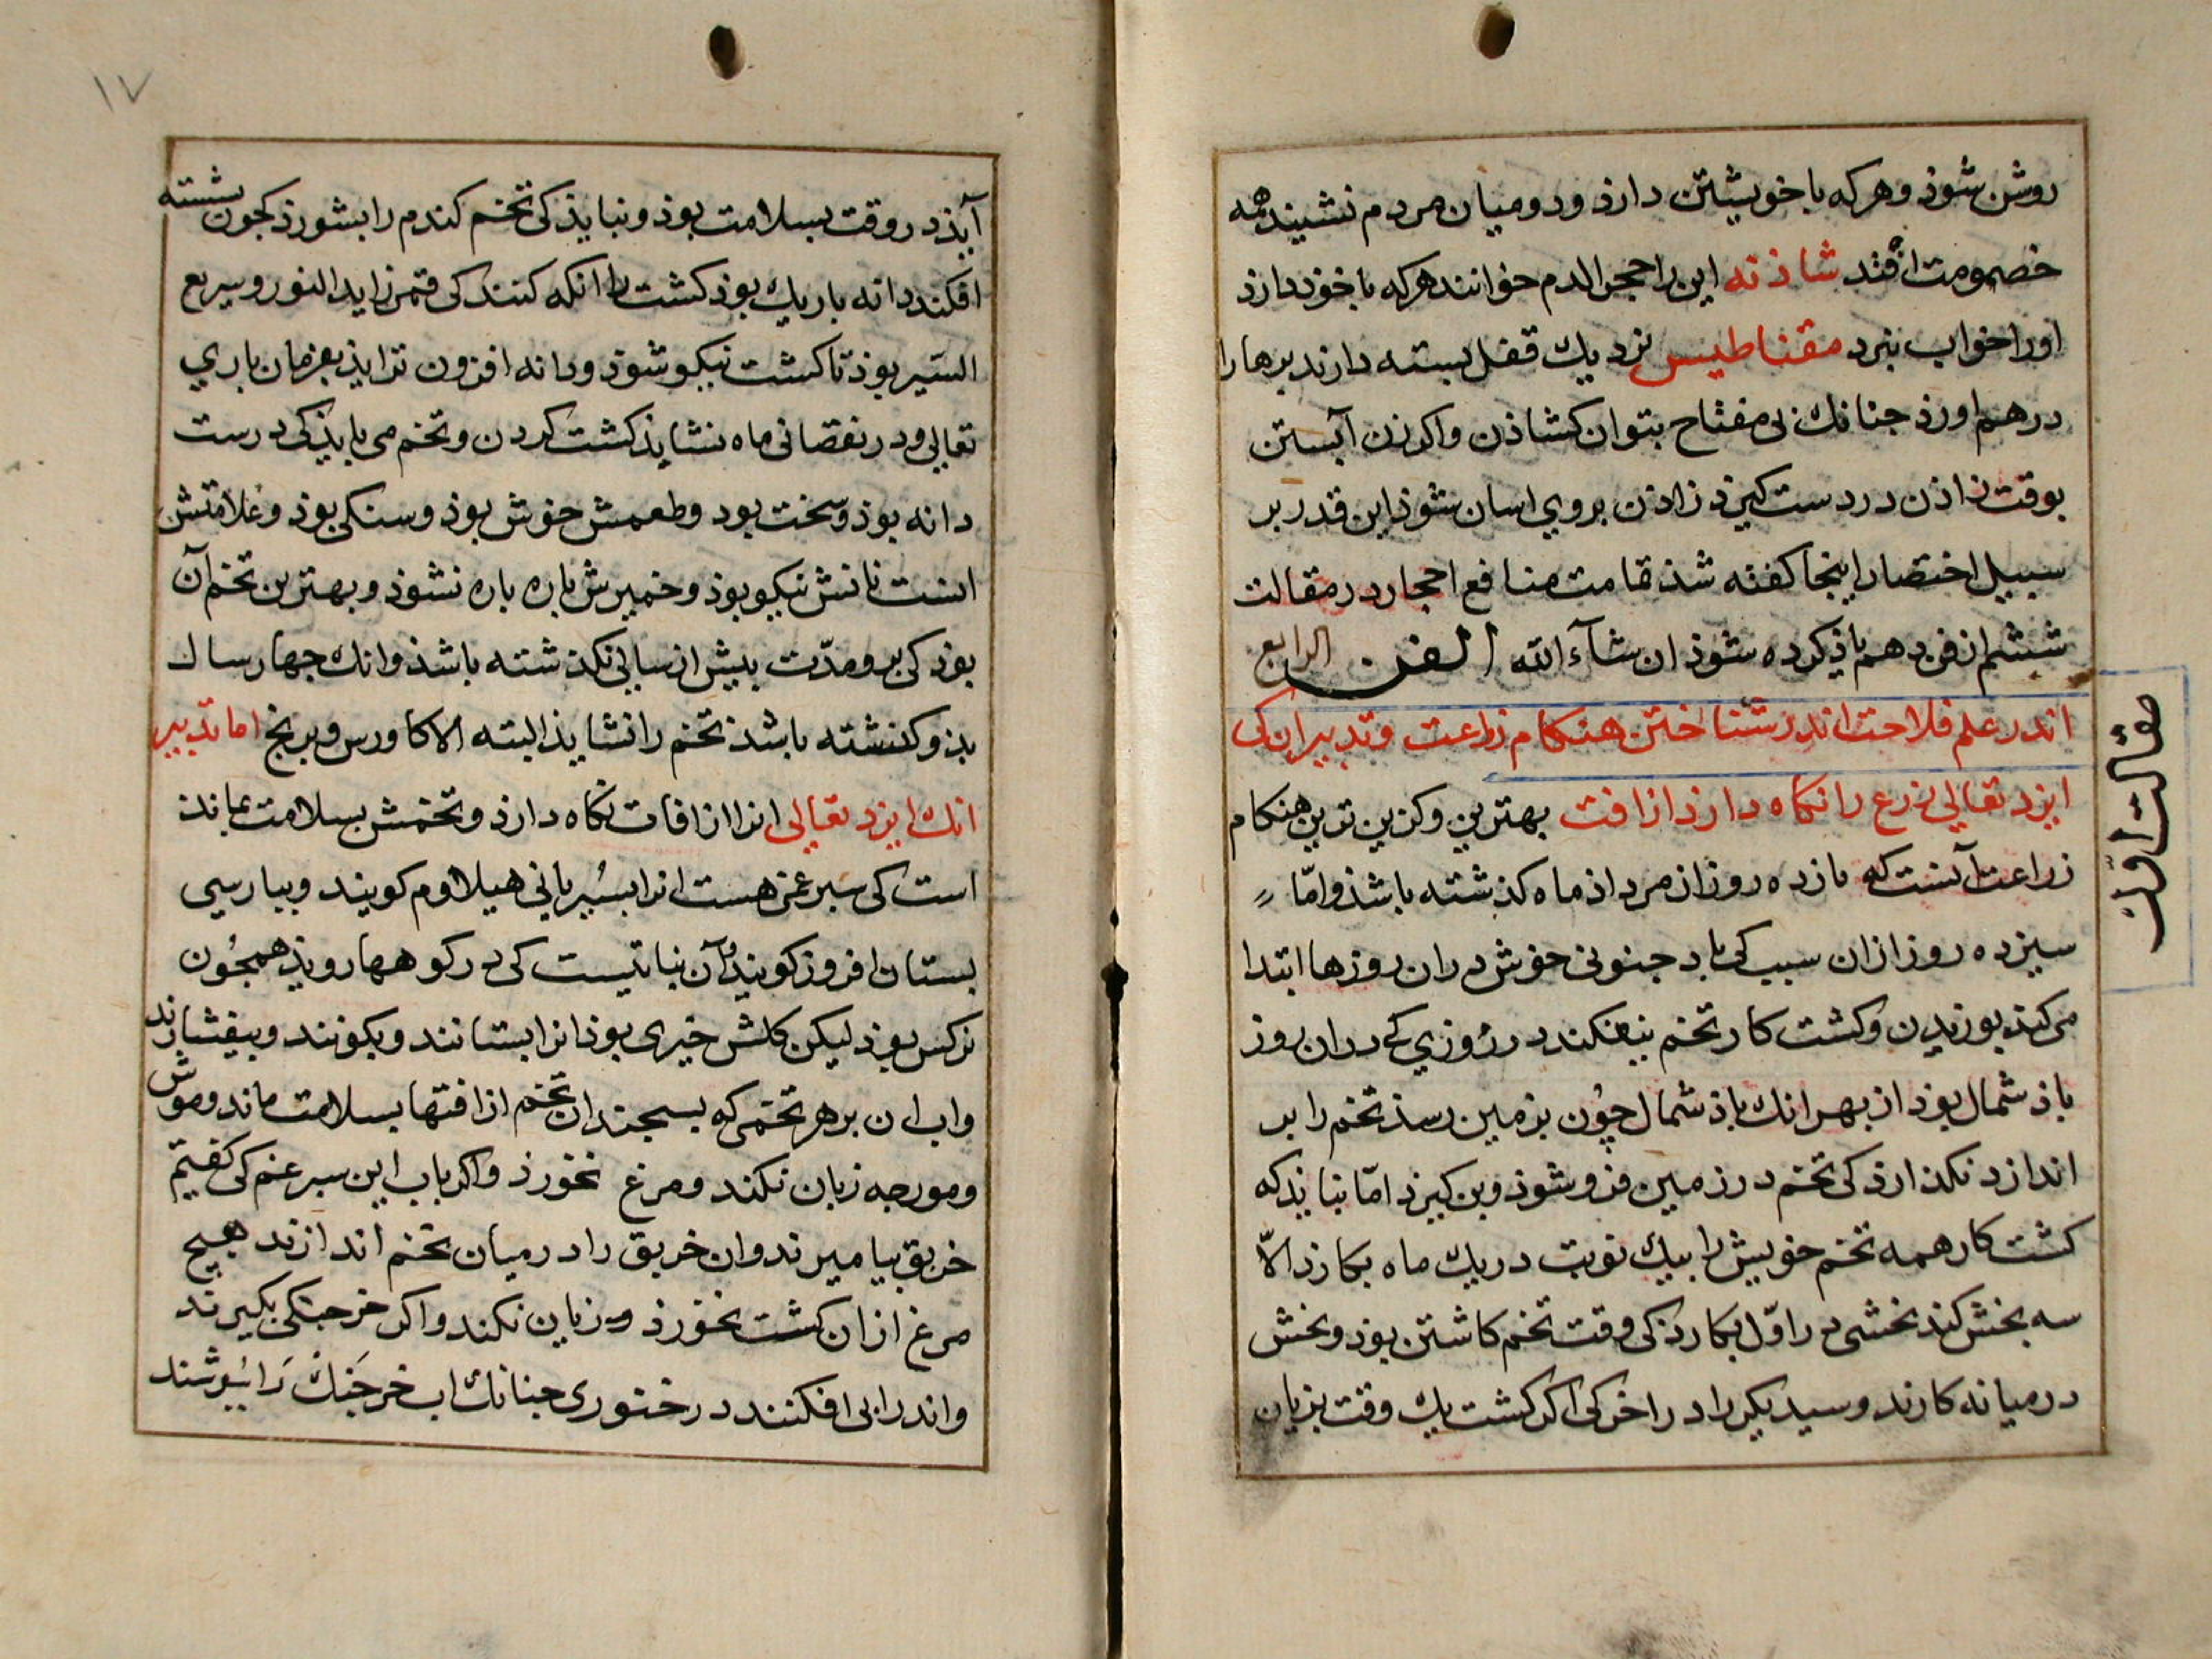 روشن شوذ وهرکه با خویشتن دارذ ودو میان مردم نشیند همه
خصومت افتد شاذنه این را حجر الدم خوانند هرکه با خوذ دارذ
اورا خواب نبرد مقناطیس نزدیك قفل بسته دارند برها را
درهم اورذ جنانك بی مفتاح بتوان کشاذن واکر زن آبستن
بوقت زاذن در دست کیرذ زاذن بروي اسان شوذ این قدر بر
سبیل اختصار اینجا کفته شذ تمامت منافع احجار در مقالت
ششم از فن دهم یاذ کرده شوذ ان شآء الله الفن الرابع
اندر علم فلاحت اندر شناختن هنکام زراعت وتدبیر ان کی
ایزد تعالی زرع را نکاه دارذ از افت بهترین وکزین ترین هنکام
زراعت آنست که بازده روز از مرداذ ماه کذشته باشذ وامّا
سیزده روز ازان سبب کی باد جنوبی خوش دران روزها ابتدا
می کند بوزیدن وکشت کار تخم بیفکند در رُوزي کی دران روز
باذ شمال بوذ از بهر انك باذ شمال چُون بزمین رسذ تخم را بر
اندازد نکذارذ کی تخم در زمین فرو شوذ وبن کیرذ امّا نبایذ که
کشت کار همه تخم خویش را بیك نوبت در یك ماه بکارذ الاّ
سه بخش کند بخشی در اوّل بکارذ کی وقت تخم کاشتن بوذ وبخش
درمیانه کارند وسیدیکر را در اخر کی اکر کشت یك وقت بزیان
مقالت اول
١٧
آیذ در وقت بسلامت بوذ ونبایذ کی تخم کندم را بشورذ کجون شسته
افکند دانه باریك بوذ کشت را انکه کنند کی قمر زاید النور وسریع
السّیر بوذ تا کشت نیکو شوذ ودانه افزون تر ایذ بفرمان باري
تعالی ودر نقصانی ماه نشایذ کشت کردن وتخم می بایذ کی درست
دانه بوذ وسخت بود وطعمش خوش بوذ وسنکی بوذ وعلامتش
انست نانش نیکو بوذ وخمیرش باره باره نشوذ وبهترین تخم آن
بوذ کی برو مدّت بیش از سالی نکذشته باشذ وانك جهار سال
بذو کذشته باشد تخم را نشایذ البته الا کاورس وبرنج اما تدبیر
انك ایزد تعالی انرا از افات نکاه دارذ وتخمش بسلامت بماند
است کی سبرغمی هست انرا بسُریانی هیلاوم کویند وببارسی
بستان افروز کویند وآن نباتیست کی در کوهها رویذ همجُون
نرکس بوذ لیکن کلش خیری بوذ انرا بستانند وبکوبند وبیفشارند
واب ان بر هر تخمی که بسجند ان تخم از افتها بسلامت ماند وموش
ومورجه زیان نکند ومرغ نخورذ واکر باب این سبرغم کی کفتیم
خربق بیامیزند وان خربق را در میان تخم اندازند هیج
مرغ ازان کشت نخورذ وزیان نکند واکر خرجنکی بکیرند
واندرابی افکنند در خنوری جنانك اب خرجَنك رَا ببوشند